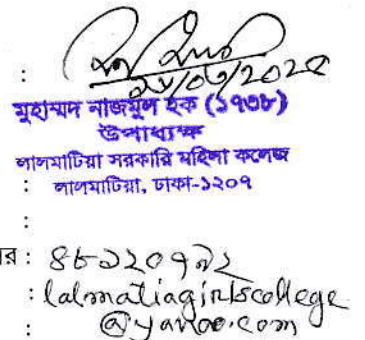 :
২৮/০৩/২০২৫
মুহাম্মদ নাজমুল হক (১৭৩৮)
উপাধ্যক্ষ
লালমাটিয়া সরকারি মহিলা কলেজ
: লালমাটিয়া, ঢাকা-১২০৭
:
ার : ৪৮১২০৭৯২
: lalmatiagirlscollege
: @yahoo.com